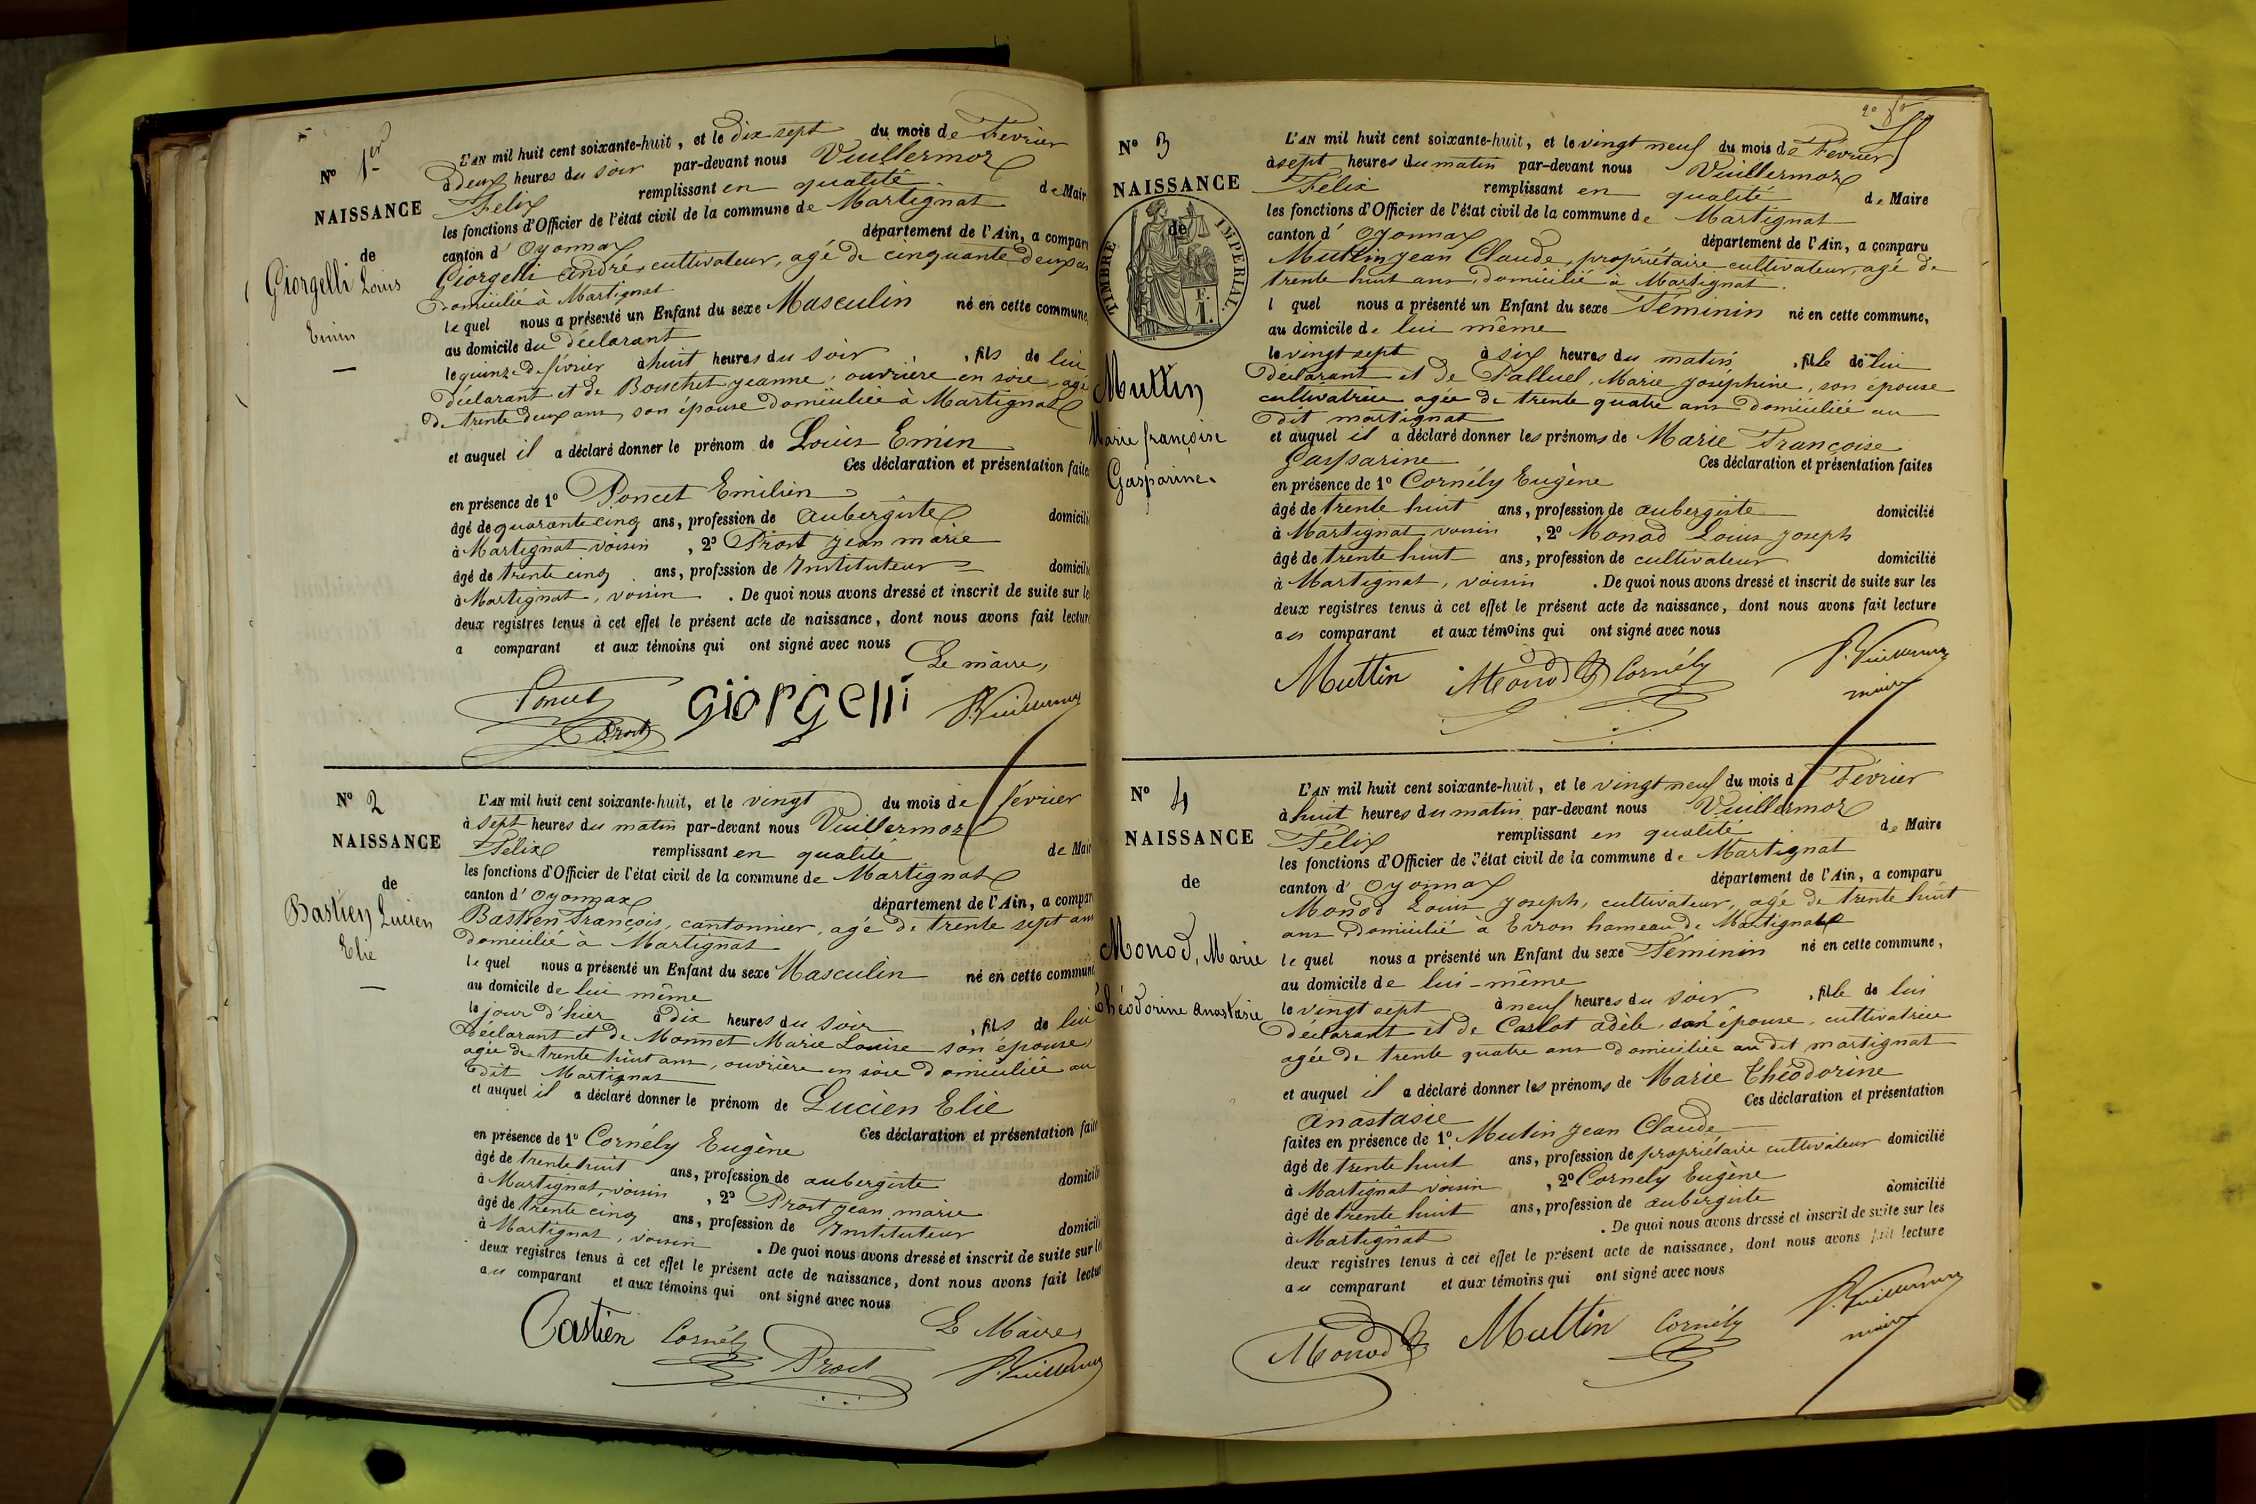 N° 1er
NAISSANCE
de
Giorgelli Louis
Emin
L'AN mil huit cent soixante-huit, et le dix sept du mois de Février
à deux heures du soir par-devant nous Vuillermoz
Félix remplissant en qualité de Mair
les fonctions d'Officier de l'état civil de la commune de Martignat
canton d' Oyonnax département de l'Ain, a compar
Giorgelli André, cultivateur, agé de cinquante deux ans
Domicilié à Martignat
le quel nous a présenté un Enfant du sexe Masculin né en cette commune,
au domicile du déclarant
le quinze de février à huit heures du soir, fils de lui
déclarant et de Bouchet Jeanne, ouvrière en soie, agé
de trente deux ans, son épouse domiciliée à Martignat
et auquel il a déclaré donner le prénom de Louis Emin
Ces déclaration et présentation faites
en présence de 1° Poncet Emilien
âgé de quarante cinq ans, profession de Aubergiste domicilié
à Martignat voisin, 2° Prost Jean marie
âgé de trente cinq ans, profession de Instituteur domicilié
à Martignat, voisin. De quoi nous avons dressé et inscrit de suite sur le
deux registres tenus à cet effet le présent acte de naissance, dont nous avons fait lecture
a comparant et aux témoins qui ont signé avec nous
Le maire,
Poncet giorgelli F. Vuillermoz
Prost
N° 2
NAISSANCE
de
Bastien Lucien
Elie
L'AN mil huit cent soixante-huit, et le vingt du mois de février
à sept heures du matin par-devant nous Vuillermoz
Félix remplissant en qualité de Mair
les fonctions d'Officier de l'état civil de la commune de Martignat
canton d' Oyonnax département de l'Ain, a compar
Bastien François, cantonnier, agé de trente sept ans
domicilié à Martignat
le quel nous a présenté un Enfant du sexe Masculin né en cette commune
au domicile de lui même
le jour d'hier à dix heures du soir, fils de lui
Déclarant et de Monnet Marie Louise son épouse,
agée de trente huit ans, ouvrière en soie domiciliée au
dit Martignat
et auquel il a déclaré donner le prénom de Lucien Elie
Ces déclaration et présentation faite
en présence de 1° Cornély Eugène
âgé de trente huit ans, profession de aubergiste domicilié
à Martignat, voisin, 2° Prost Jean marie
âgé de trente cinq ans, profession de Instituteur domicilié
à Martignat, voisin. De quoi nous avons dressé et inscrit de suite sur le
deux registres tenus à cet effet le présent acte de naissance, dont nous avons fait lectur
au comparant et aux témoins qui ont signé avec nous
Le Maire,
Bastien Cornély Prost F. Vuillermoz
2e
N° 3
NAISSANCE
de
TIMBRE IMPERIAL
Muttin
Marie françoise
Gasparine.
L'AN mil huit cent soixante-huit, et le vingt neuf du mois de Février
à sept heures du matin par-devant nous Vuillermoz
Félix remplissant en qualité de Maire
les fonctions d'Officier de l'état civil de la commune de Martignat
canton d' Oyonnax département de l'Ain, a comparu
Muttin Jean Claude, propriétaire cultivateur, agé de
trente huit ans, domicilié à Martignat.
l quel nous a présenté un Enfant du sexe Féminin né en cette commune,
au domicile de lui même
le vingt sept à six heures du matin, fille de lui
Déclarant et de Palluel, Marie Joséphine, son épouse
cultivatrice agée de trente quatre ans Domiciliée au
dit martignat
et auquel il a déclaré donner les prénoms de Marie Françoise
Gasparine Ces déclaration et présentation faites
en présence de 1° Cornély Eugène
âgé de trente huit ans, profession de aubergiste domicilié
à Martignat voisin, 2° Monod Louis Joseph
âgé de trente huit ans, profession de cultivateur domicilié
à Martignat, voisin. De quoi nous avons dressé et inscrit de suite sur les
deux registres tenus à cet effet le présent acte de naissance, dont nous avons fait lecture
au comparant et aux témoins qui ont signé avec nous
Muttin Monod Cornély F. Vuillermoz
maire
N° 4
NAISSANCE
de
Monod, Marie
Théodorine Anastasie
L'AN mil huit cent soixante-huit, et le vingt neuf du mois d Février
à huit heures du matin par-devant nous Vuillermoz
Félix remplissant en qualité de Maire
les fonctions d'Officier de l'état civil de la commune de Martignat
canton d' Oyonnax département de l'Ain, a comparu
Monod Louis Joseph, cultivateur, agé de trente huit
ans domicilié à Evron hameau de Martignat
le quel nous a présenté un Enfant du sexe Féminin né en cette commune,
au domicile de lui-même
le vingt sept à neuf heures du soir, fille de lui
déclarant et de Carlot adèle, son épouse, cultivatrice
agée de trente quatre ans domiciliée au dit martignat
et auquel il a déclaré donner les prénoms de Marie Théodorine
Anastasie Ces déclaration et présentation
faites en présence de 1° Mutin Jean Claude
âgé de trente huit ans, profession de propriétaire cultivateur domicilié
à Martignat voisin, 2° Cornely Eugène
âgé de trente huit ans, profession de aubergiste domicilié
à Martignat .De quoi nous avons dressé et inscrit de suite sur les
deux registres tenus à cet effet le présent acte de naissance, dont nous avons fait lecture
au comparant et aux témoins qui ont signé avec nous
Monod Muttin Cornély F. Vuillermoz
maire